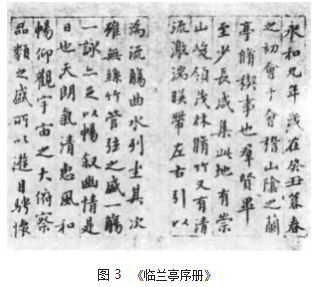 永和九年歲在癸丑暮春
之初會于會稽山陰之蘭
亭脩稧事也群賢畢
至少長咸集此地有崇
山峻領茂林脩竹又有清
流激湍暎帶左右引以
為流觴曲水列坐其次
雖無絲竹管弦之盛一觴
一詠亦足以暢叙幽情是
日也天朗氣清惠風和
暢仰觀宇宙之大俯察
品類之盛所以遊目騁懷
图 3 《临兰亭序册》